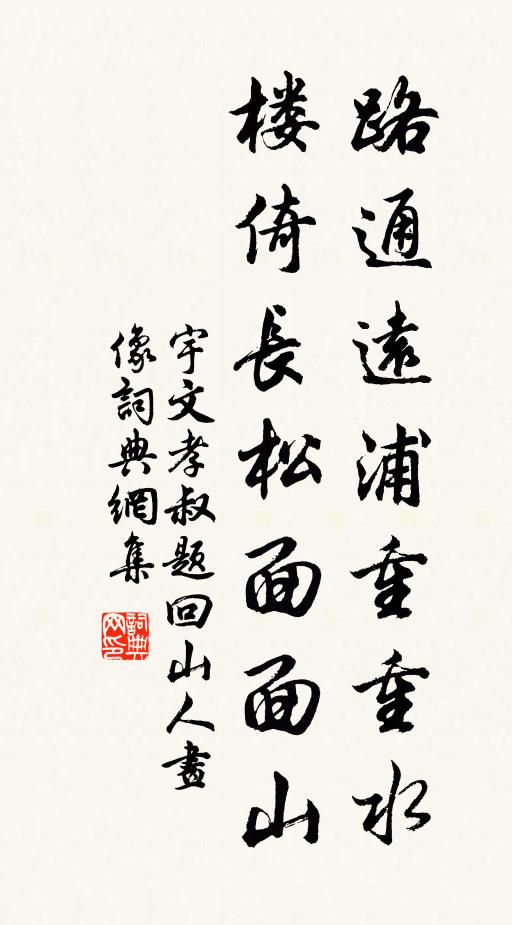 路通遠浦重重水
楼倚長松面面山
宇文孝叔题回山人畫
像詞典網集
詞典网印